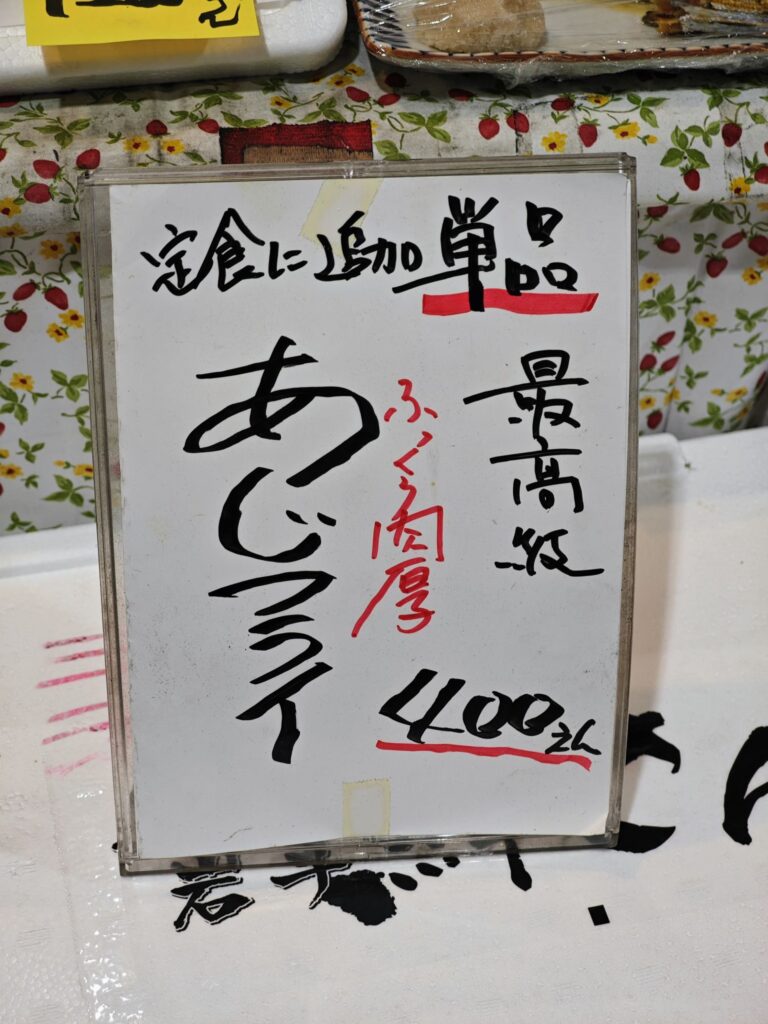 定食に追加単品
最高級
ふっくら肉厚
あじフライ
400えん